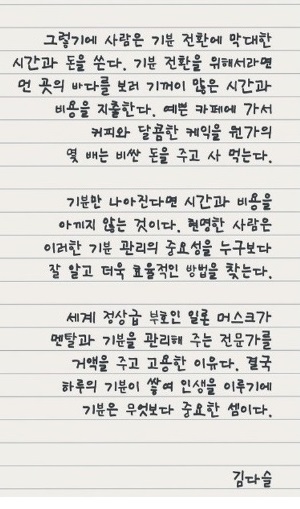 그렇기에 사람은 기분 전환에 막대한
시간과 돈을 쓴다. 기분 전환을 위해서라면
먼 곳의 바다를 보러 기꺼이 많은 시간과
비용을 지출한다. 예쁜 카페에 가서
커피와 달콤한 케익을 원가의
몇 배는 비싼 돈을 주고 사 먹는다.
기분만 나아진다면 시간과 비용을
아끼지 않는 것이다. 현명한 사람은
이러한 기분 관리의 중요성을 누구보다
잘 알고 더욱 효율적인 방법을 찾는다.
세계 정상급 부호인 일론 머스크가
멘탈과 기분을 관리해 주는 전문가를
거액을 주고 고용한 이유다. 결국
하루의 기분이 쌓여 인생을 이루기에
기분은 무엇보다 중요한 셈이다.
김다슬